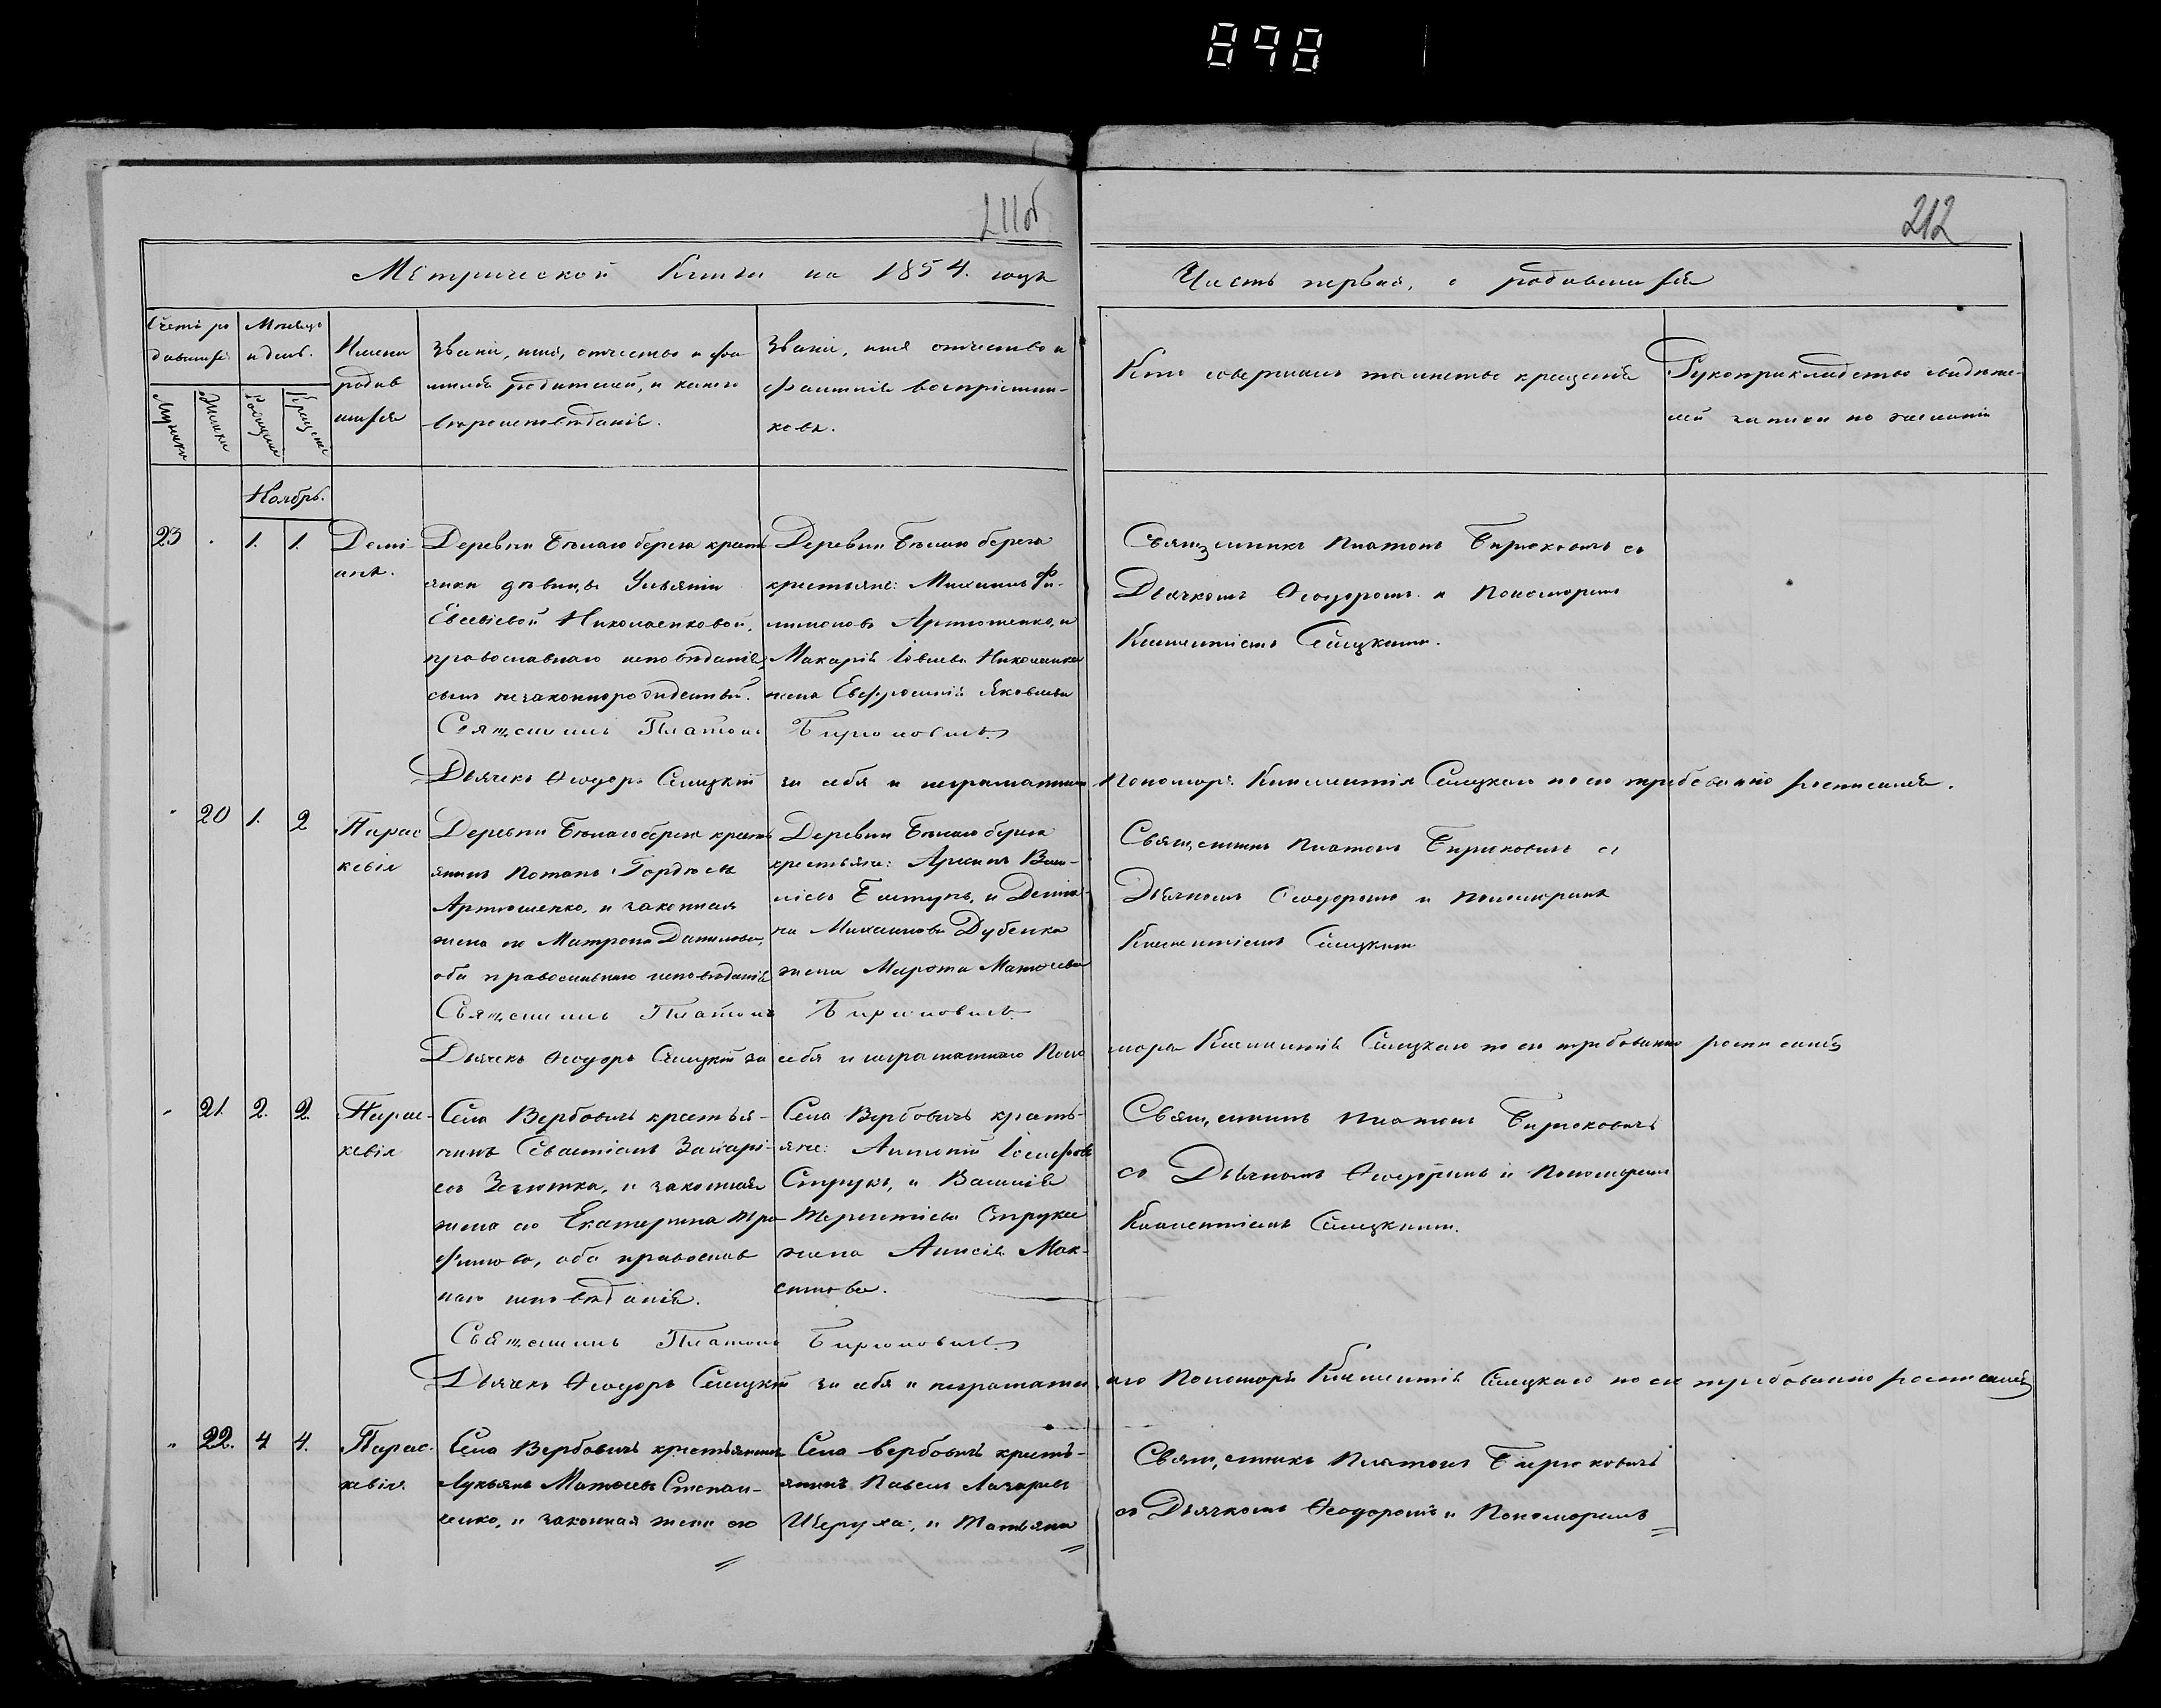 898
211об
212
Метрической Книги на 1854. годъ
Часть первая, о родившихся
Счетъ ро
дившихся
Мужеска
Женска
Месяцъ
и день.
Рожденія
Крещенія
Имена
родив
шихся
Званіе, имя, отчество и фа
милія родителей, и какого
вѣроисповѣданія.
Званіе, имя отчество и
фамилія воспріемни-
ковъ.
Кто совершалъ таинство крещенія
Рукоприкладство свидѣте-
лей записи по желанію
Ноябрь.
23 . 1. 1.
Деми-
анъ.
Деревни Бѣлаго берега кресть
янки дѣвицы Ульяніи
Евсевіевой Николаенковой,
православнаго исповѣданія,
сынъ незаконнорожденный.
Деревни Бѣлаго берега
крестьяне: Михаилъ Фи-
лимоновъ Артюшенко, и
Макарія Іовлева Николаенка
жена Евфросинія Яковлева
Священникъ Платонъ Бирюковичъ съ
Дьячкомъ Ѳеодоромъ и Пономаремъ
Климентіемъ Селецкимъ.
Священникъ Платонъ Бирюковичъ
Дьячекъ Ѳеодоръ Селецкій за себя и неграматнаго Пономаря Климентія Селецкаго по его требованію росписался.
" 20 1. 2
Парас
кевія
Деревни Бѣлаго берега кресть
янинъ Потапъ Гордѣевъ
Артюшенко, и законная
жена его Матрона Данилова,
оба православнаго исповѣданія
Деревни Бѣлаго берега
крестьяне: Архипъ Васи-
ліевъ Бовтунъ, и Деміа-
на Михаилова Дубенка
жена Марѳа Матѳеева
Священникъ Платонъ Бирюковичъ съ
Дьячкомъ Ѳеодоромъ и Пономаремъ
Климентіемъ Селецкимъ
Священникъ Платонъ Бирюковичъ
Дьячекъ Ѳеодоръ Селецкій за себя и неграматнаго Поно маря Климентія Селецкаго по его требованію росписался
" 21. 2. 2.
Парас-
кевія
Села Вербовичъ крестья-
нинъ Севастіанъ Захарі-
евъ и законная
жена его Екатерина Тро
фимова, оба православ
наго исповѣданія.
Села Вербовичъ кресть-
яне: Антоній Іосифовъ
Струкъ, и Василія
Терентіева Струка
жена Анисія Мак-
симова.
Священникъ Платонъ Бирюковичъ
съ Дьячкомъ Ѳеодоромъ и Пономаремъ
Климентіемъ Селецкимъ.
Священникъ Платонъ Бирюковичъ
Дьячекъ Ѳеодоръ Селецкій за себя и неграматнаго Пономаря Климентія Селецкаго по его требованію росписался
" 22. 4 4.
Парас-
кевія
Села Вербовичъ крестьянинъ
Лукьянъ Матѳеевъ Степан-
ченко, и законная жена его
Села Вербовичъ кресть-
янинъ Павелъ Лазаревъ
Шеруха, и Татьяна
Священникъ Платонъ Бирюковичъ
съ Дьячкомъ Ѳеодоромъ и Пономаремъ